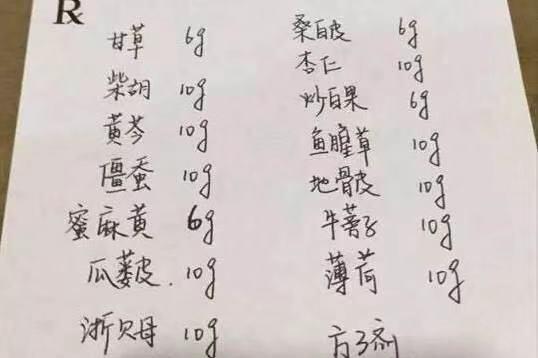 Rx
甘草 6g 桑白皮 6g
柴胡 10g 杏仁 10g
黄芩 10g 炒白果 6g
僵蚕 10g 鱼腥草 10g
蜜麻黄 6g 地骨皮 10g
瓜蒌皮. 10g 牛蒡子 10g
浙贝母 10g 薄荷 10g